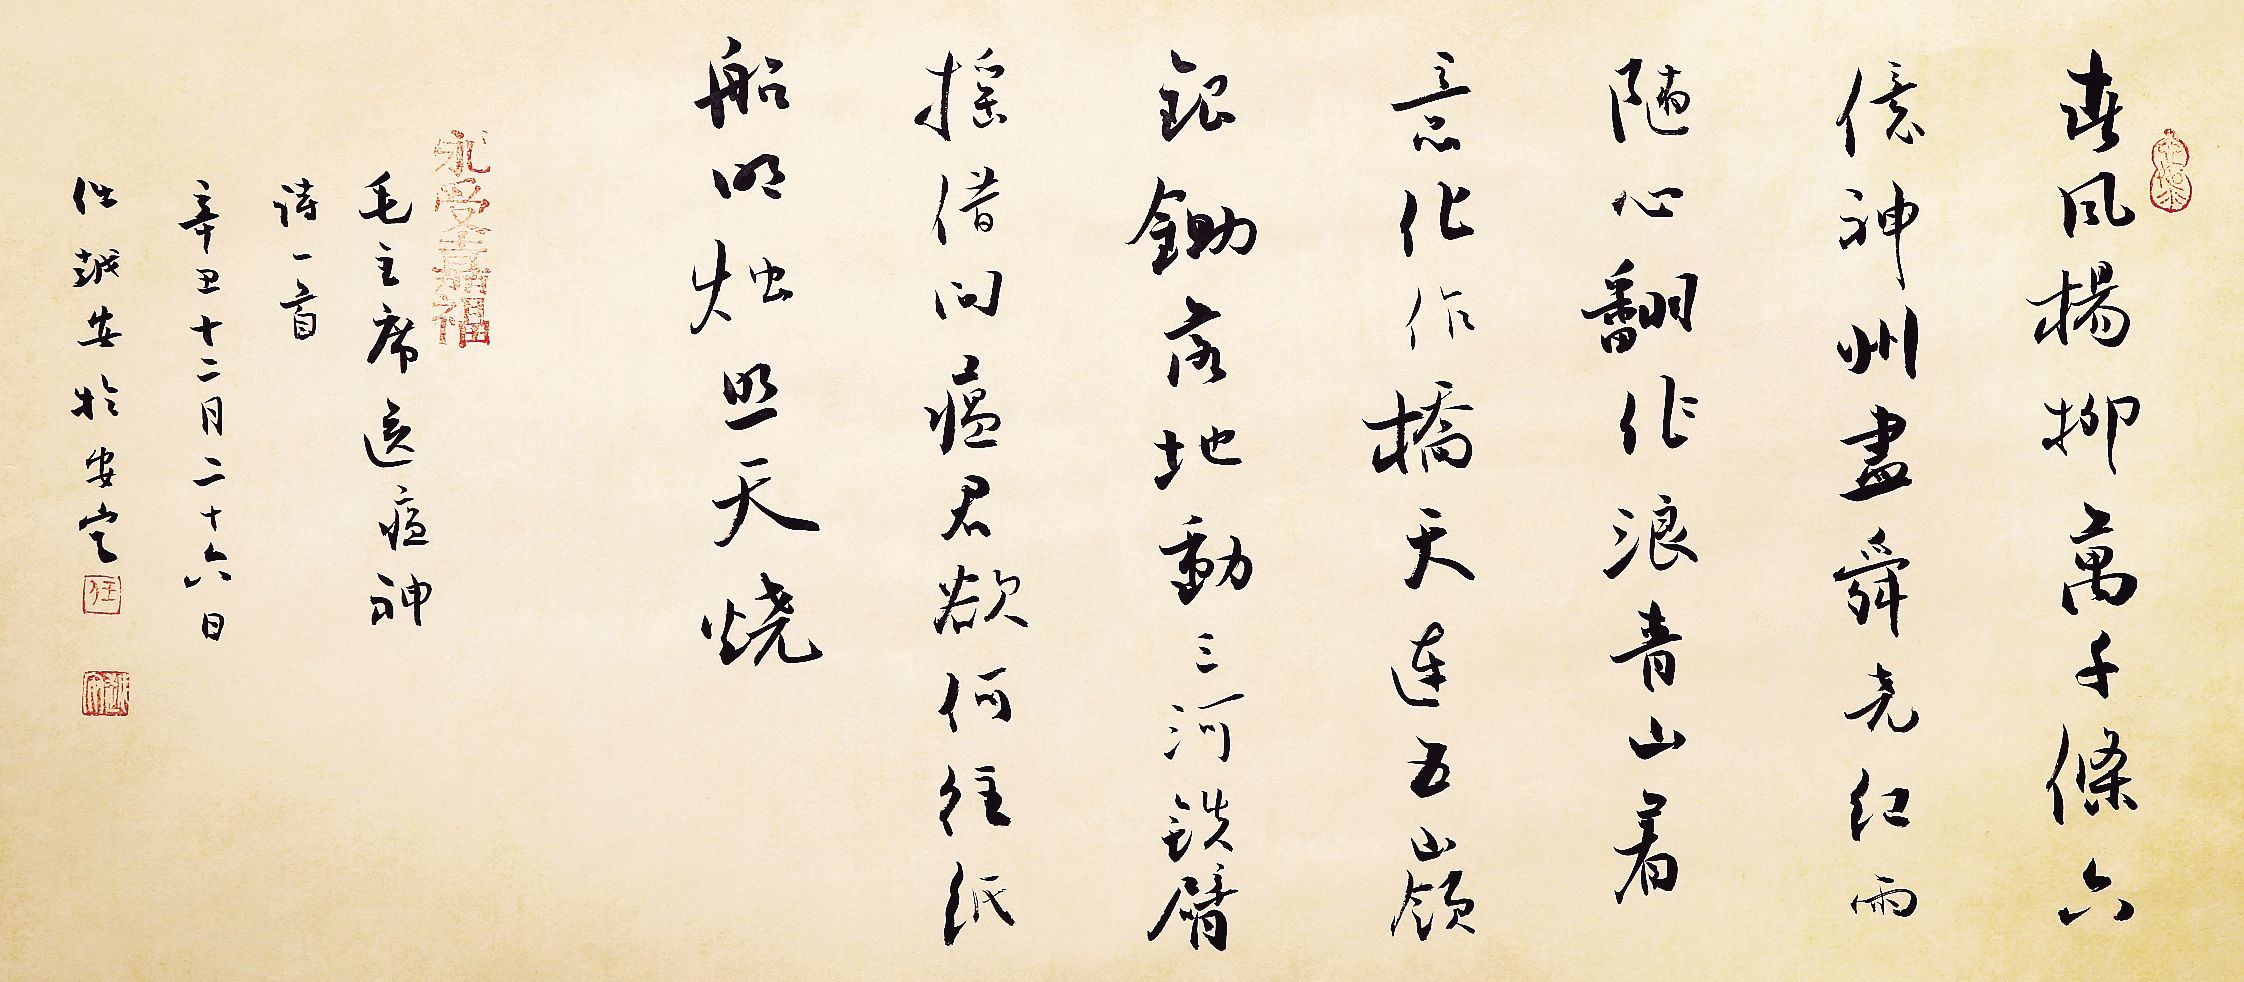 春风楊柳萬千條六
億神州盡舜尧红雨
随心翻作浪青山着
意化作橋天连五嶺
銀鋤落地動三河鉄臂
摇借问瘟君欲何往纸
船明烛照天烧
永受嘉福
毛主席送瘟神
诗一首
辛丑十二月二十六日
任越安於安定
任
越安